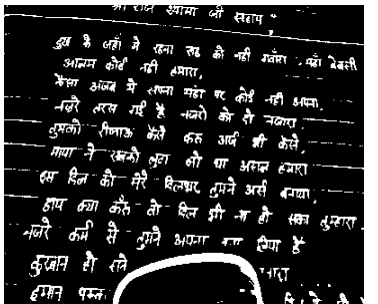 श्री राज श्यामा जी सहाय
दुख के जहाँ मे रहना रूह को नही गवाँरा यहाँ बेबसी
आलम कोई नही हमारा,
कैसा अजब ये सपना यहाँ पर कोई नही अपना,
नजरे तरस गई है नजरो को दो नजारा
तुमको रीझाऊ कैसे करू अर्ज भी कैसे,
माया ने हमको लुटा जो था असल हमारा
इस दिल को मेरे दिलबर तुमने अर्श बनाया,
हाय क्या करूँ जो दिल भी ना हो सका तुम्हारा
नजरे कर्म से तुमने अपना बना लिया है
कुरबान हो